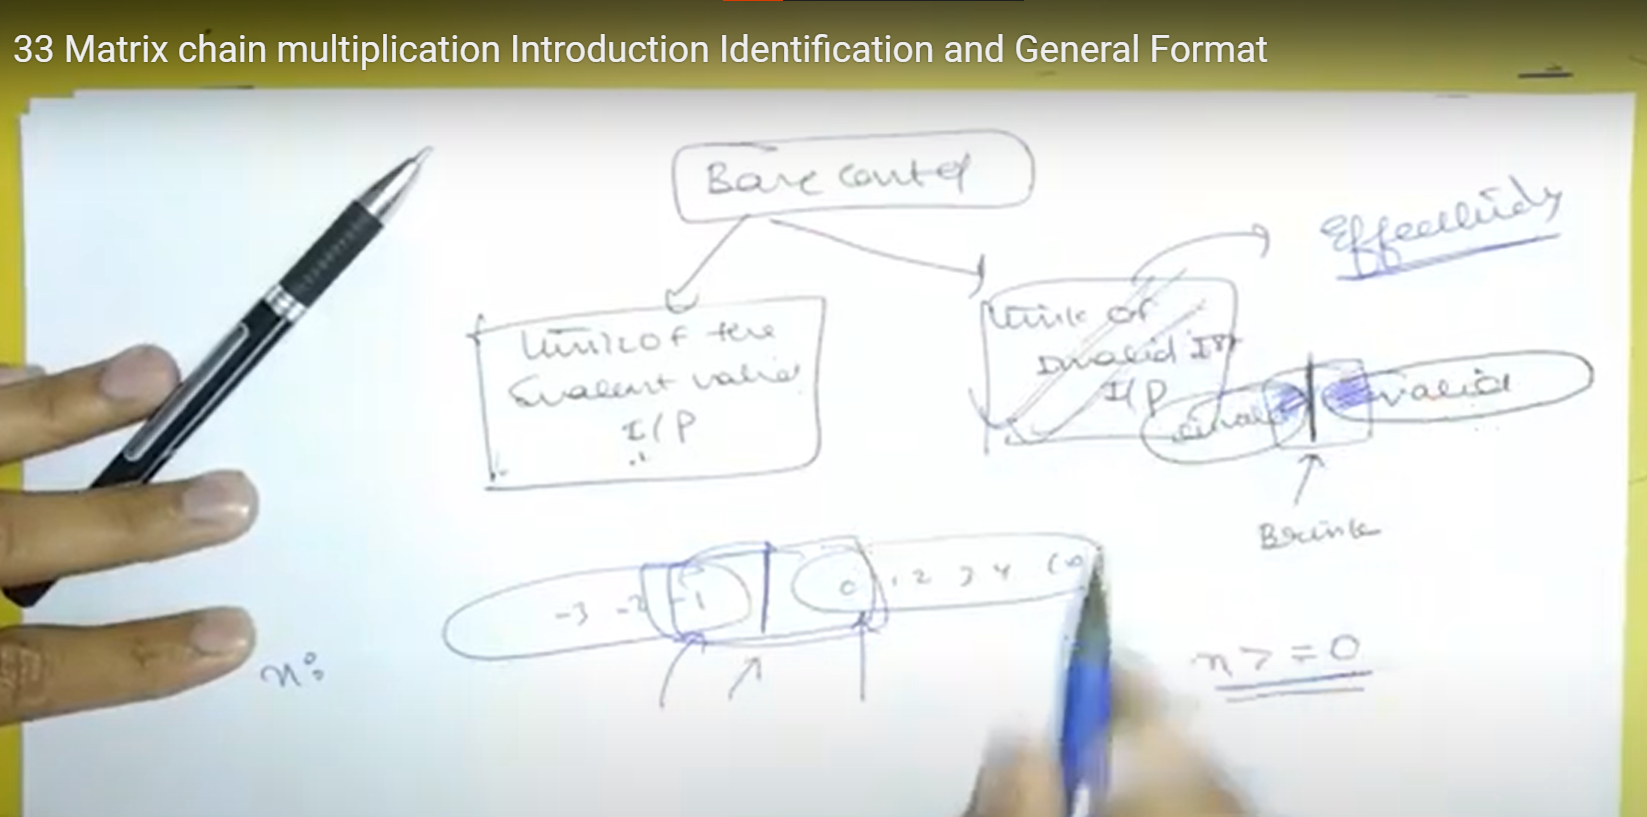 33 Matrix chain multiplication Introduction Identification and General Format
Base
Effectively
Think of the
Smallest valid
I/P
Think of
Invalid 1st
I/P
invalid
valid
Brink
-3 -2 -1 0 1 2 3 4
n:
n >= 0